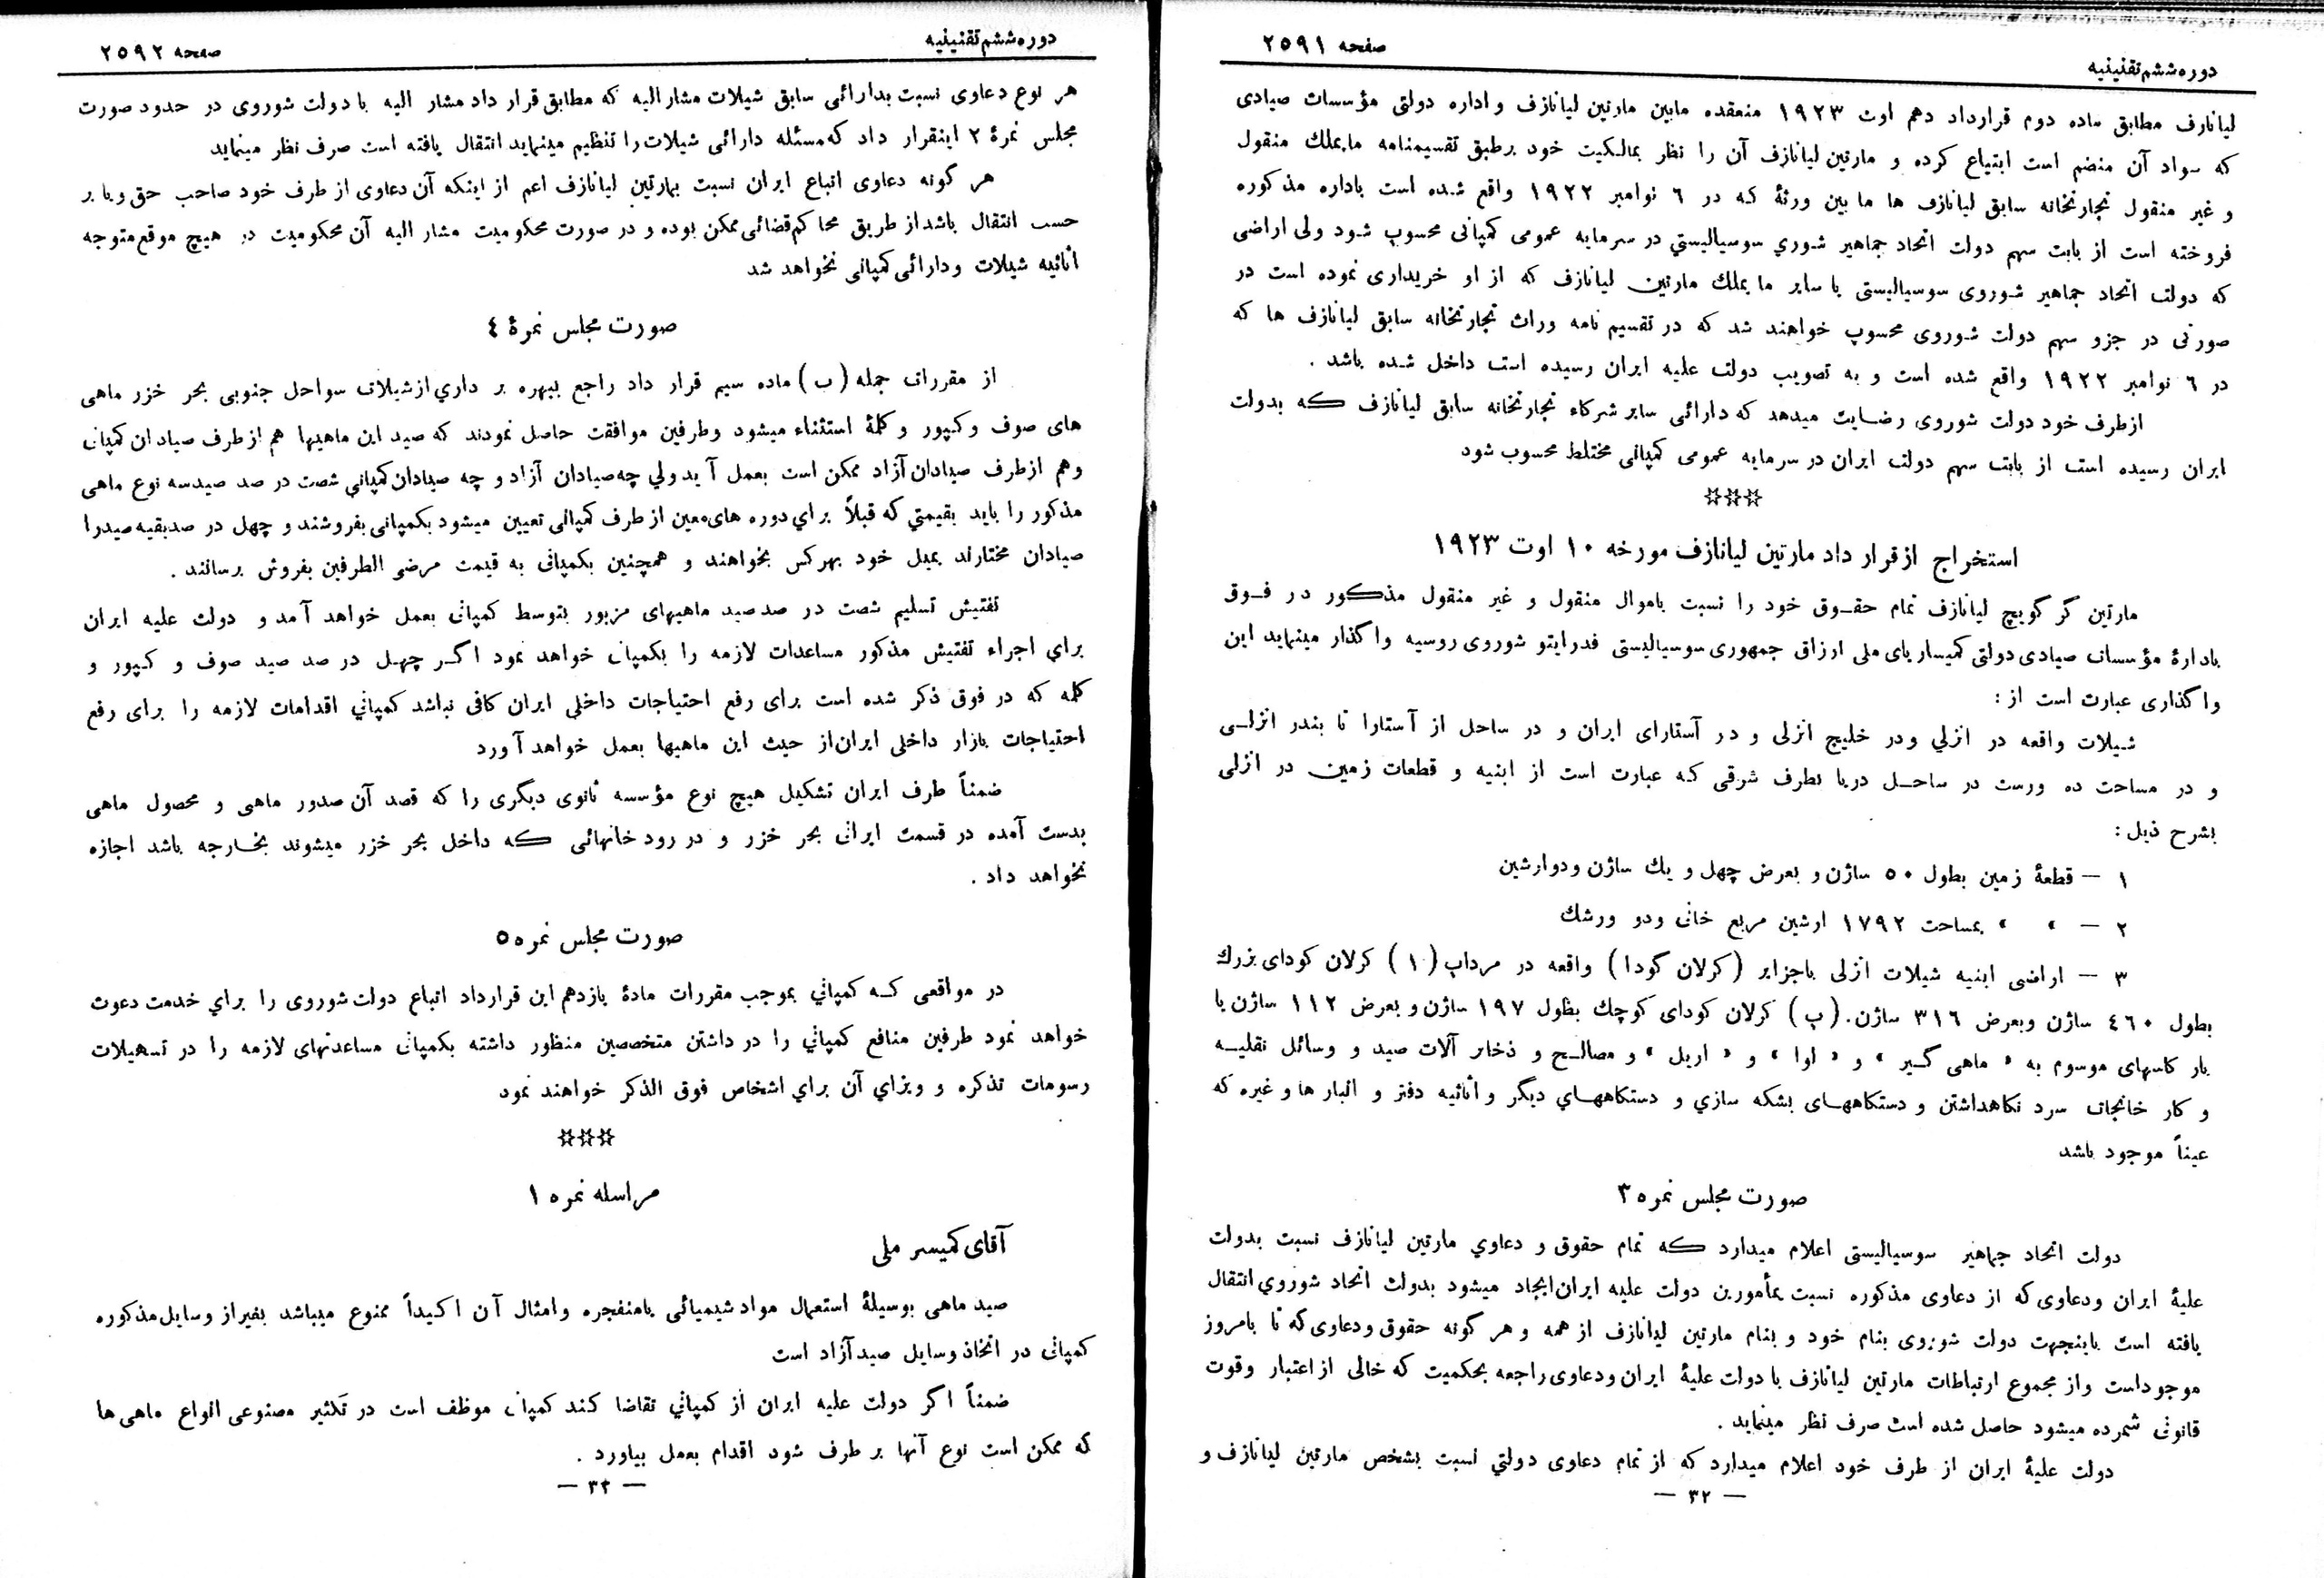 صفحه ۲۵۹۱
دوره ششم تقنینیه
لیانازف مطابق ماده دوم قرارداد دهم اوت ۱۹۲۳ منعقده مابین مارتین لیانازف و اداره دولتی مؤسسات صیادی
که سواد آن منضم است ابتیاع کرده و مارتین لیانازف آن را نظر بمالکیت خود برطبق تقسیمنامه مایملك منقول
و غیر منقول تجارتخانه سابق لیانازف ها ما بین ورثهٔ که در ٦ نوامبر ۱۹۲۲ واقع شده است باداره مذکوره
فروخته است از بابت سهم دولت اتحاد جماهیر شوروي سوسیالیستي در سرمایه عمومی کمپانی محسوب شود ولی اراضی
که دولت اتحاد جماهیر شوروی سوسیالیستی یا سایر ما یملك مارتین لیانازف که از او خریداری نموده است در
صورتی در جزو سهم دولت شوروی محسوب خواهند شد که در تقسیم نامه وراث تجارتخانه سابق لیانازف ها که
در ٦ نوامبر ۱۹۲۲ واقع شده است و به تصویب دولت علیه ایران رسیده است داخل شده باشد .
ازطرف خود دولت شوروی رضایت میدهد که دارائی سایر شرکاء تجارتخانه سابق لیانازف که بدولت
ایران رسیده است از بابت سهم دولت ایران در سرمایه عمومی کمپانی مختلط محسوب شود
✡✡✡
استخراج ازقرار داد مارتین لیانازف مورخه ۱۰ اوت ۱۹۲۳
مارتین گر گویچ لیانازف تمام حقوق خود را نسبت باموال منقول و غیر منقول مذکور در فوق
بادارهٔ مؤسسات صیادی دولتی کمیساریای ملی ارزاق جمهوری سوسیالیستی فدراتیو شوروی روسیه واگذار مینماید این
واگذاری عبارت است از :
شیلات واقعه در انزلي ودر خلیج انزلی و در آستارای ایران و در ساحل از آستارا تا بندر انزلی
و در مساحت ده ورست در ساحل دریا بطرف شرقی که عبارت است از ابنیه و قطعات زمین در انزلی
بشرح ذیل :
۱ — قطعهٔ زمین بطول ۵۰ ساژن و بعرض چهل و یك ساژن ودوارشین
۲ — » » بمساحت ۱۷۹۲ ارشین مربع خانی ودو ورشك
۳ — اراضی ابنیه شیلات انزلی باجزایر (کرلان گودا) واقعه در مرداب (۱) کرلان کودای بزرك
بطول ٤٦۰ ساژن وبعرض ۳۱٦ ساژن . (ب) کرلان کودای کوچك بطول ۱۹۷ ساژن و بعرض ۱۱۲ ساژن با
بار کاسهای موسوم به « ماهی گیر » و « اوا » و « اریل » و مصالح و ذخایر آلات صید و وسائل نقلیه
و کار خانجات سرد نگاهداشتن و دستگاههای بشکه سازي و دستگاههاي دیگر و اثاثیه دفتر و انبار ها و غیره که
عیناً موجود باشد
صورت مجلس نمره ۳
دولت اتحاد جماهیر سوسیالیستی اعلام میدارد که تمام حقوق و دعاوي مارتین لیانازف نسبت بدولت
علیهٔ ایران ودعاوی که از دعاوی مذکوره نسبت بمأمورین دولت علیه ایران ایجاد میشود بدولت اتحاد شوروي انتقال
یافته است باینجهت دولت شوروی بنام خود و بنام مارتین لیانازف از همه و هر گونه حقوق ودعاوی که تا بامروز
موجوداست واز مجموع ارتباطات مارتین لیانازف با دولت علیهٔ ایران ودعاوی راجعه بحکمیت که خالی از اعتبار وقوت
قانونی شمرده میشود حاصل شده است صرف نظر مینماید .
دولت علیهٔ ایران از طرف خود اعلام میدارد که از تمام دعاوی دولتي نسبت بشخص مارتین لیانازف و
— ۳۲ —
دوره ششم تقنینیه
صفحه ۲۵۹۲
هر نوع دعاوی نسبت بدارائی سابق شیلات مشارالیه که مطابق قرار داد مشار الیه با دولت شوروی در حدود صورت
مجلس نمرهٔ ۲ اینقرار داد که مسئله دارائی شیلات را تنظیم مینماید انتقال یافته است صرف نظر مینماید
هر گونه دعاوی اتباع ایران نسبت بمارتین لیانازف اعم از اینکه آن دعاوی از طرف خود صاحب حق ویا بر
حسب انتقال باشد از طریق محاکم قضائی ممکن بوده و در صورت محکومیت مشار الیه آن محکومیت در هیچ موقع متوجه
اثاثیه شیلات ودارائی کمپانی نخواهد شد
صورت مجلس نمرهٔ ٤
از مقررات جمله (ب) ماده سیم قرار داد راجع ببهره بر داري ازشیلات سواحل جنوبی بحر خزر ماهی
های صوف وکپور وکلمهٔ استثناء میشود وطرفین موافقت حاصل نمودند که صید این ماهیها هم ازطرف صیادان کمپانی
وهم ازطرف صیادان آزاد ممکن است بعمل آید ولي چه صیادان آزاد و چه صیادان کمپانی شصت در صد صیدسه نوع ماهی
مذکور را باید بقیمتي که قبلاً براي دوره های معین از طرف کمپانی تعیین میشود بکمپانی بفروشند و چهل در صدبقیه صیدرا
صیادان مختارند بمیل خود بهرکس بخواهند و همچنین بکمپانی به قیمت مرضی الطرفین بفروش برسانند .
تفتیش تسلیم شصت در صدصید ماهیهای مزبور بتوسط کمپانی بعمل خواهد آمد و دولت علیه ایران
براي اجراء تفتیش مذکور مساعدات لازمه را بکمپانی خواهد نمود اگر چهل در صد صید صوف و کپور و
کلمه که در فوق ذکر شده است برای رفع احتیاجات داخلی ایران کافی نباشد کمپاني اقدامات لازمه را برای رفع
احتیاجات بازار داخلی ایران از حیث این ماهیها بعمل خواهد آورد
ضمناً طرف ایران تشکیل هیچ نوع مؤسسه ثانوی دیگری را که قصد آن صدور ماهی و محصول ماهی
بدست آمده در قسمت ایرانی بحر خزر و در رود خانهائی که داخل بحر خزر میشوند بخارجه باشد اجازه
نخواهد داد .
صورت مجلس نمره ۵
در مواقعی که کمپاني بموجب مقررات مادهٔ یازدهم این قرارداد اتباع دولت شوروی را براي خدمت دعوت
خواهد نمود طرفین منافع کمپاني را در داشتن متخصصین منظور داشته بکمپانی مساعدتهای لازمه را در تسهیلات
رسومات تذکره و ویزاي آن براي اشخاص فوق الذکر خواهند نمود
✡✡✡
مراسله نمره ۱
آقای کمیسر ملی
صید ماهی بوسیلهٔ استعمال مواد شیمیائی یامنفجره وامثال آن اکیداً ممنوع میباشد بغیراز وسایل مذکوره
کمپانی در اتخاذ وسایل صید آزاد است
ضمناً اگر دولت علیه ایران از کمپاني تقاضا کند کمپانی موظف است در تکثیر مصنوعی انواع ماهی ها
که ممکن است نوع آنها بر طرف شود اقدام بعمل بیاورد .
— ۳۳ —